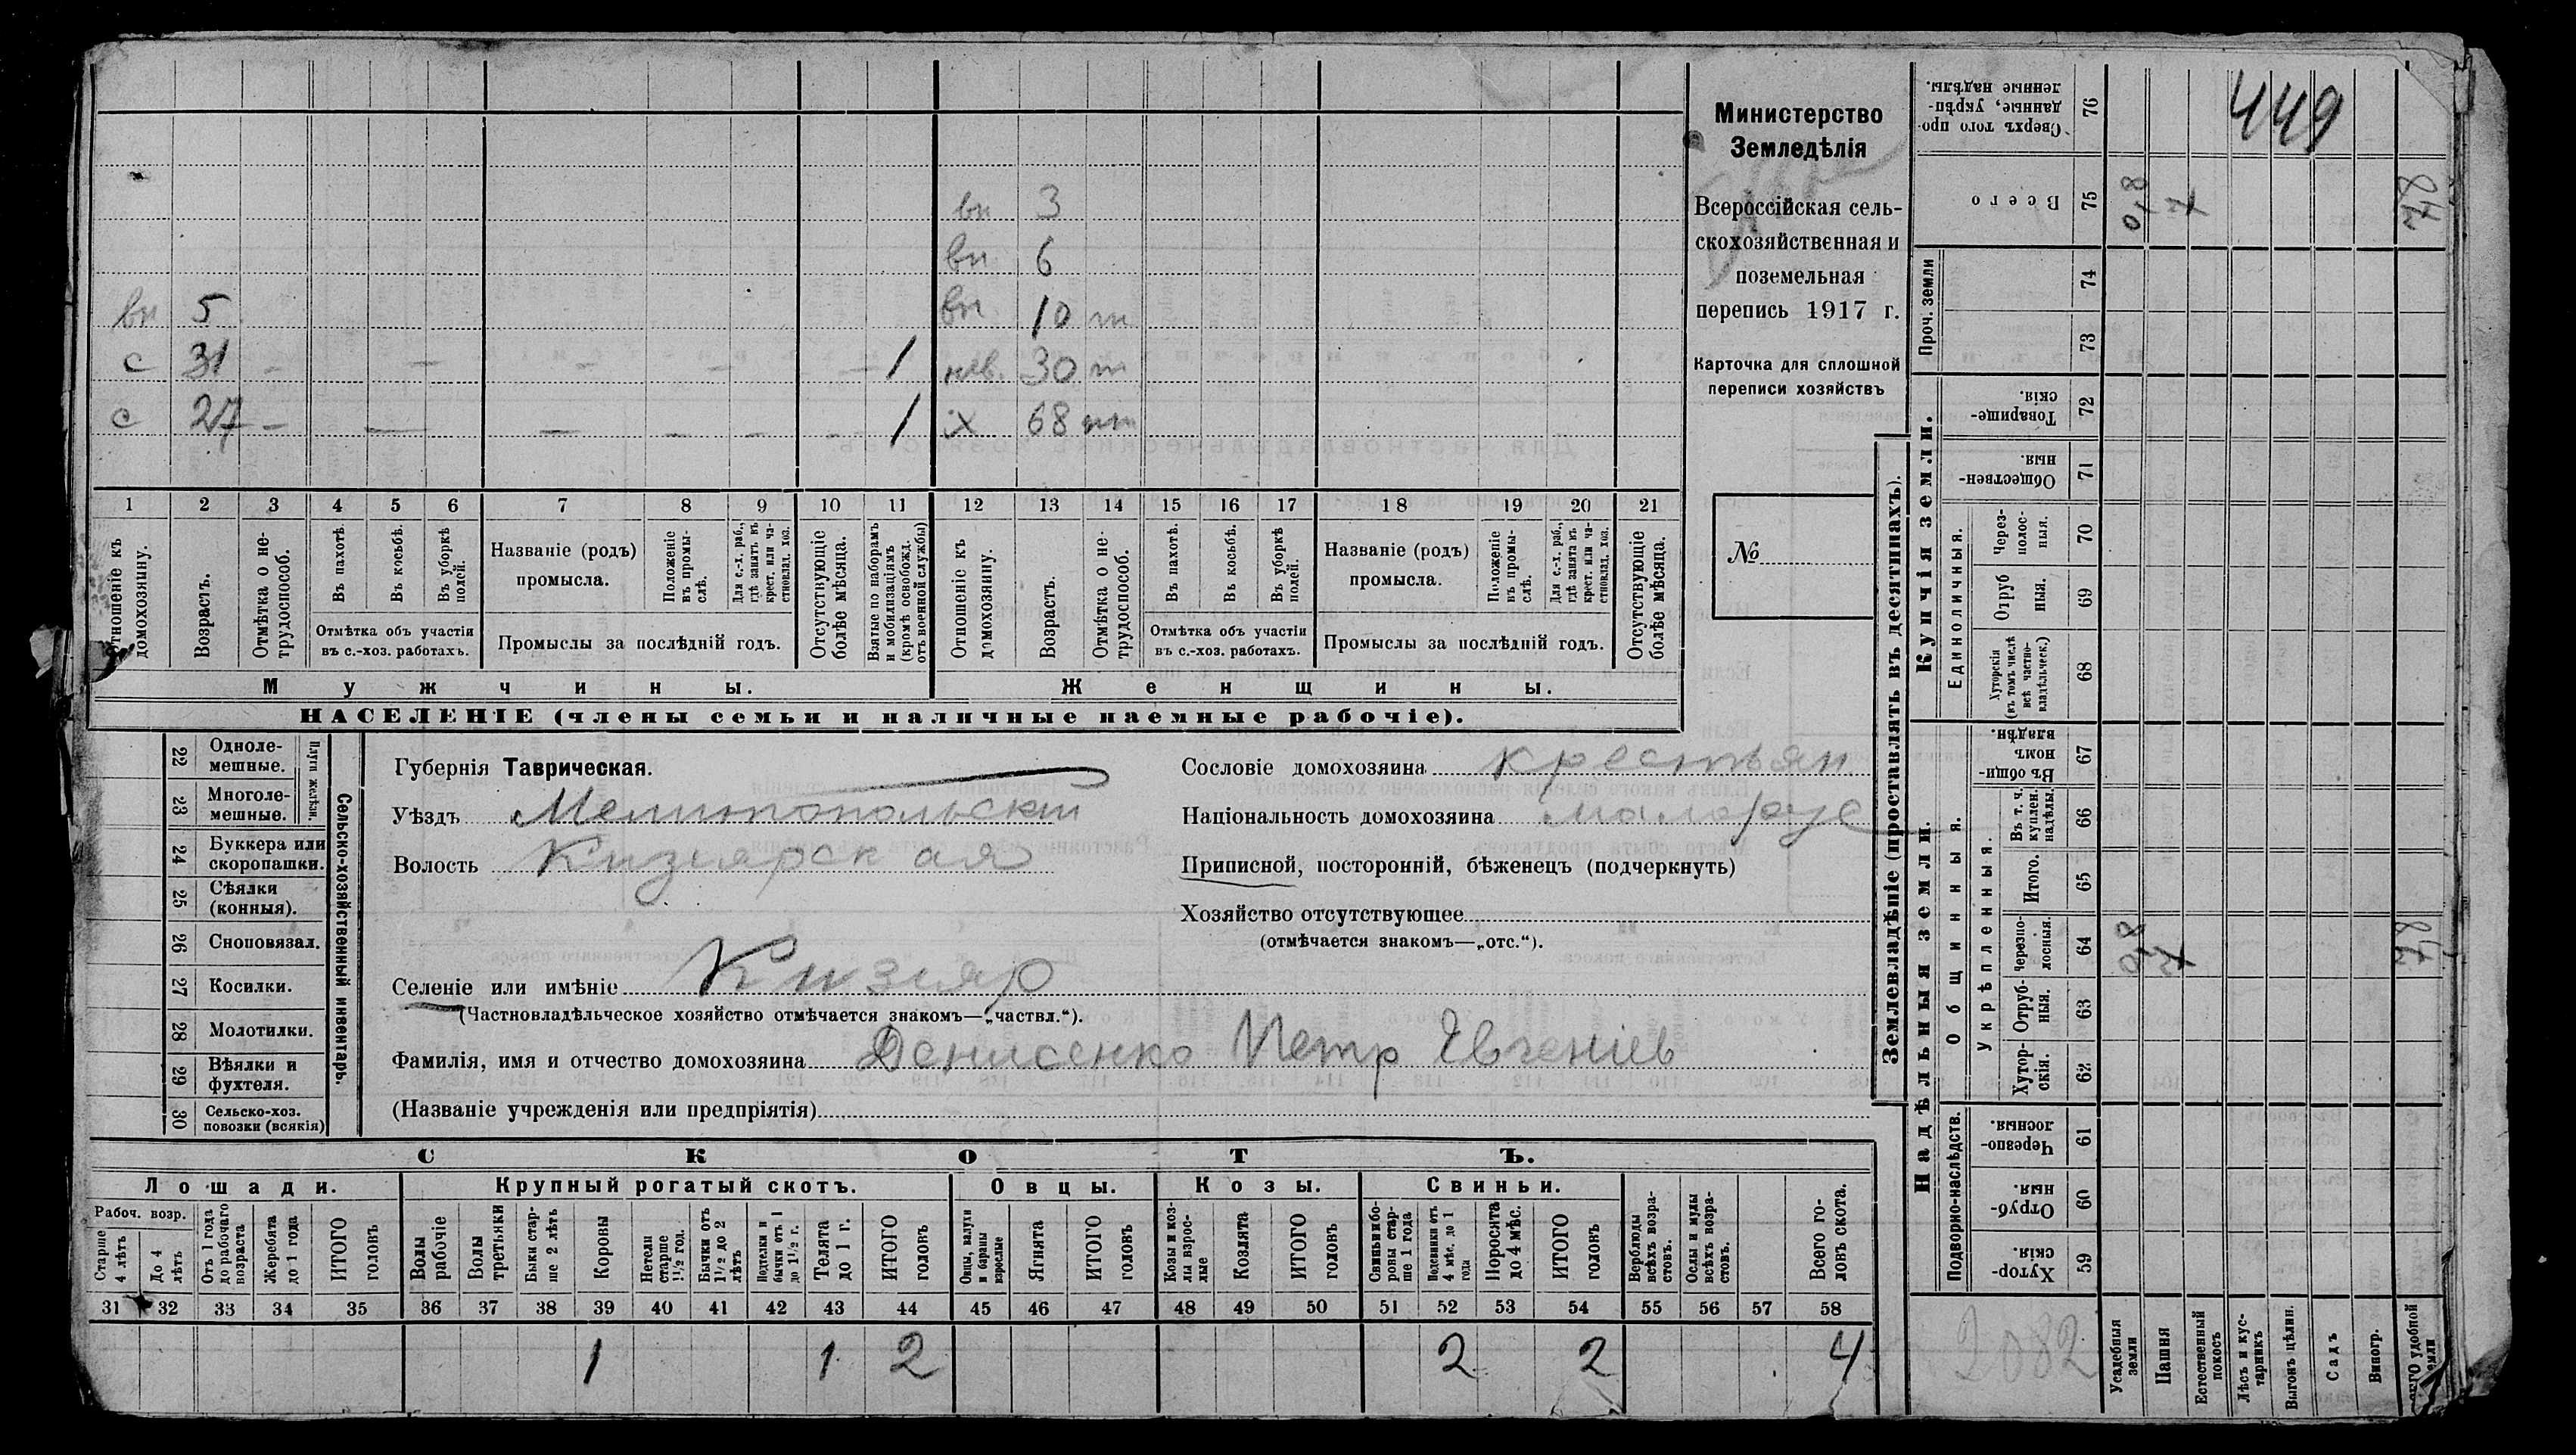 449
Министерство
Земледѣлія
Всероссійская сель-
скохозяйственная и
поземельная
перепись 1917 г.
Карточка для сплошной
переписи хозяйствъ
№
вн 3
вн 6
вн 5 вн 10 т
с 31 — — — — — 1 нев. 30 т
с 27 — — — — — — 1 х 68 пт
1 2 3 4 5 6 7 8 9 10 11 12 13 14 15 16 17 18 19 20 21
Отношеніе къ домохозяину.
Возрастъ.
Отмѣтка о не-трудоспособ.
Въ пахотѣ.
Въ косьбѣ.
Въ уборкѣ полей.
Отмѣтка объ участіи
въ с.-хоз. работахъ.
Названіе (родъ)
промысла.
Положеніе въ промы-слѣ.
Для с.-х. раб., гдѣ занятъ въ крест. или ча-стновлад. хоз.
Промыслы за послѣдній годъ.
Отсутствующіе болѣе мѣсяца.
Взятые по наборамъ и мобилизаціямъ (кромѣ освобожд. отъ военной службы)
Отношеніе къ домохозяину.
Возрастъ.
Отмѣтка о не-трудоспособ.
Въ пахотѣ.
Въ косьбѣ.
Въ уборкѣ полей.
Отмѣтка объ участіи
въ с.-хоз. работахъ.
Названіе (родъ)
промысла.
Положеніе въ промы-слѣ.
Для с.-х. раб., гдѣ занята въ крест. или ча-стновлад. хоз.
Промыслы за послѣдній годъ.
Отсутствующіе болѣе мѣсяца.
Мужчины. Женщины.
НАСЕЛЕНІЕ (члены семьи и наличные наемные рабочіе).
Сельско-хозяйственный инвентарь.
Плуги желѣзн.
22 Одноле-мешные.
23 Многоле-мешные.
24 Буккера или скоропашки.
25 Сѣялки (конныя).
26 Сноповязал.
27 Косилки.
28 Молотилки.
29 Вѣялки и фухтеля.
30 Сельско-хоз. повозки (всякія)
Губернія Таврическая.
Уѣздъ Мелитопольскій
Волость Кизіярская
Сословіе домохозяина крестьян
Національность домохозяина малорус
Приписной, посторонній, бѣженецъ (подчеркнуть)
Хозяйство отсутствующее
(отмѣчается знакомъ—„отс.“).
Селеніе или имѣніе Кизіяр
(Частновладѣльческое хозяйство отмѣчается знакомъ—„частвл.“).
Фамилія, имя и отчество домохозяина Денисенко Петр Евгеніев
(Названіе учрежденія или предпріятія)
СКОТЪ.
Лошади. Крупный рогатый скотъ. Овцы. Козы. Свиньи.
Рабоч. возр.
Старше 4 лѣтъ
До 4 лѣтъ
Отъ 1 года до рабочаго возраста
Жеребята до 1 года
ИТОГО головъ
Волы рабочіе
Волы третьяки
Быки стар-ше 2 лѣтъ
Коровы
Нетели старше 1½ год.
Бычки отъ 1½ до 2 лѣтъ
Подтелки и бычки отъ 1 до 1½ г.
Телята до 1 г.
ИТОГО головъ
Овцы, валухи и бараны взрослые
Ягнята
ИТОГО головъ
Козы и коз-лы взрос-лые
Козлята
ИТОГО головъ
Свиньи и бо-ровы стар-ше 1 года
Подсвинки отъ 4 мѣс. до 1 года
Поросята до 4 мѣс.
ИТОГО головъ
Верблюды всѣхъ возра-стовъ.
Ослы и мулы всѣхъ возра-стовъ.
Всего го-ловъ скота.
31 32 33 34 35 36 37 38 39 40 41 42 43 44 45 46 47 48 49 50 51 52 53 54 55 56 57 58
1 1 2 2 2 4
Землевладѣніе (проставлять въ десятинахъ).
Купчія земли.
Надѣльныя земли.
76 Сверхъ того про-данные, укрѣп-ленные надѣлы.
75 Всего
Проч. земли
74
73
72 Товарище-скія.
71 Обществен-ныя.
Единоличныя.
70 Через-полос-ныя.
69 Отруб ныя.
68 Хуторскія (въ томъ числѣ всѣ частно-владѣльческ.)
Общинныя.
67 Въ общи-номъ владѣн.
Укрѣпленныя.
66 Въ т. ч. куплен. надѣлы.
65 Итого.
64 Черезпо-лосныя.
63 Отруб-ныя.
62 Хутор-скія.
Подворно-наслѣдств.
61 Черезпо-лосныя.
60 Отруб-ныя.
59 Хутор-скія.
3082
Усадебныя земли
Пашня
Естественный покосъ
Лѣсъ и кус-тарникъ
Выгонъ цѣлин.
Садъ
Виногр.